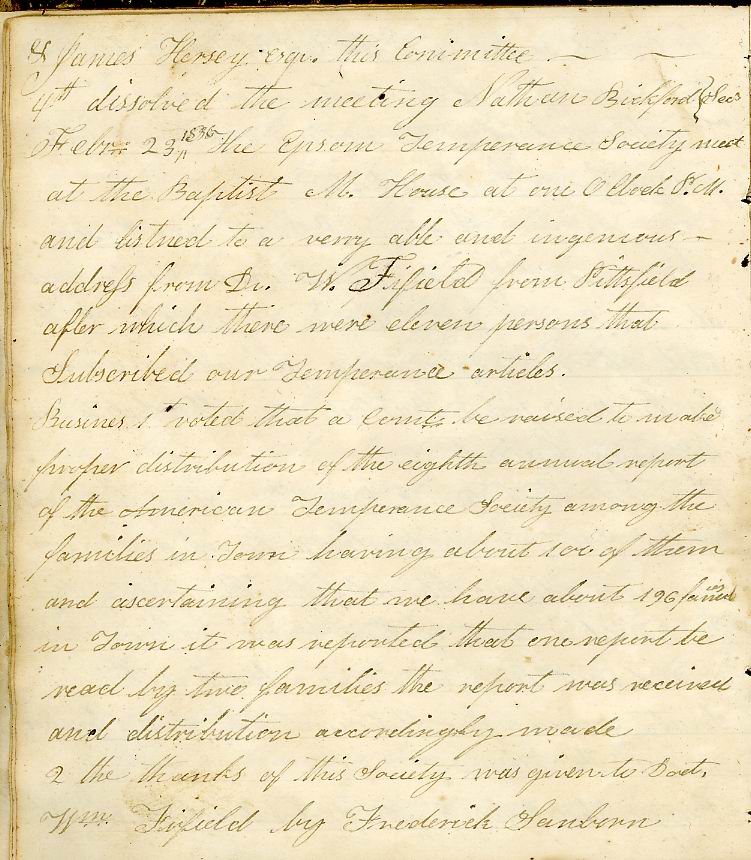 & James Hersey esqr. this Committee
4th dissolved the meeting Nathan Bickford Secr
Febru 23 1836 the Epsom Temperance Society meet
at the Baptist M. House at one O Clock P. M.
and listned to a verry able and ingenious
address from Dr. W. Fifield from Pittsfield
after which there were eleven persons that
Subscribed our Temperance articles.
Busines 1st voted that a Comte be raised to make
proper distribution of the eighth annual report
of the American Temperance Society among the
families in Town having about 100 of them
and ascertaining that we have about 196 families
in Town it was reported that one report be
read by two families the report was received
and distribution accordingly made
2 the thanks of this Society was given to Doct.
Wm. Fifield by Frederick Sanborn